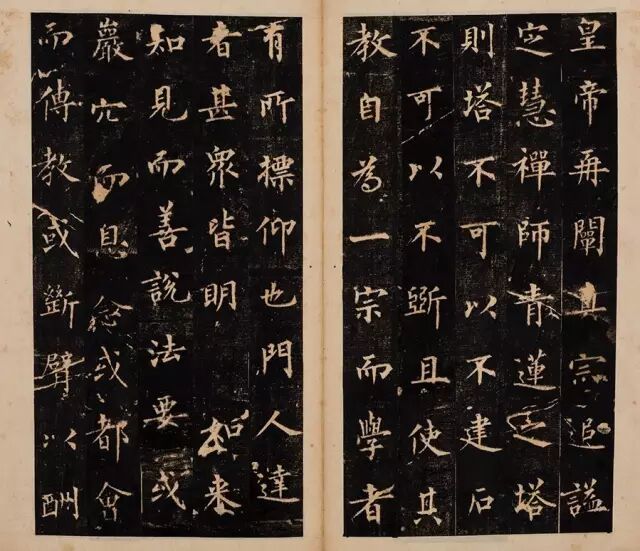 皇帝再闡其宗追謚
定慧禪師青蓮之塔
則塔不可以不建石
不可以不斲且使其
教自為一宗而學者
有所標仰也門人達
者甚眾皆明如來
知見而善說法要或
巖穴而息念或都會
而傳教或斷臂以酬